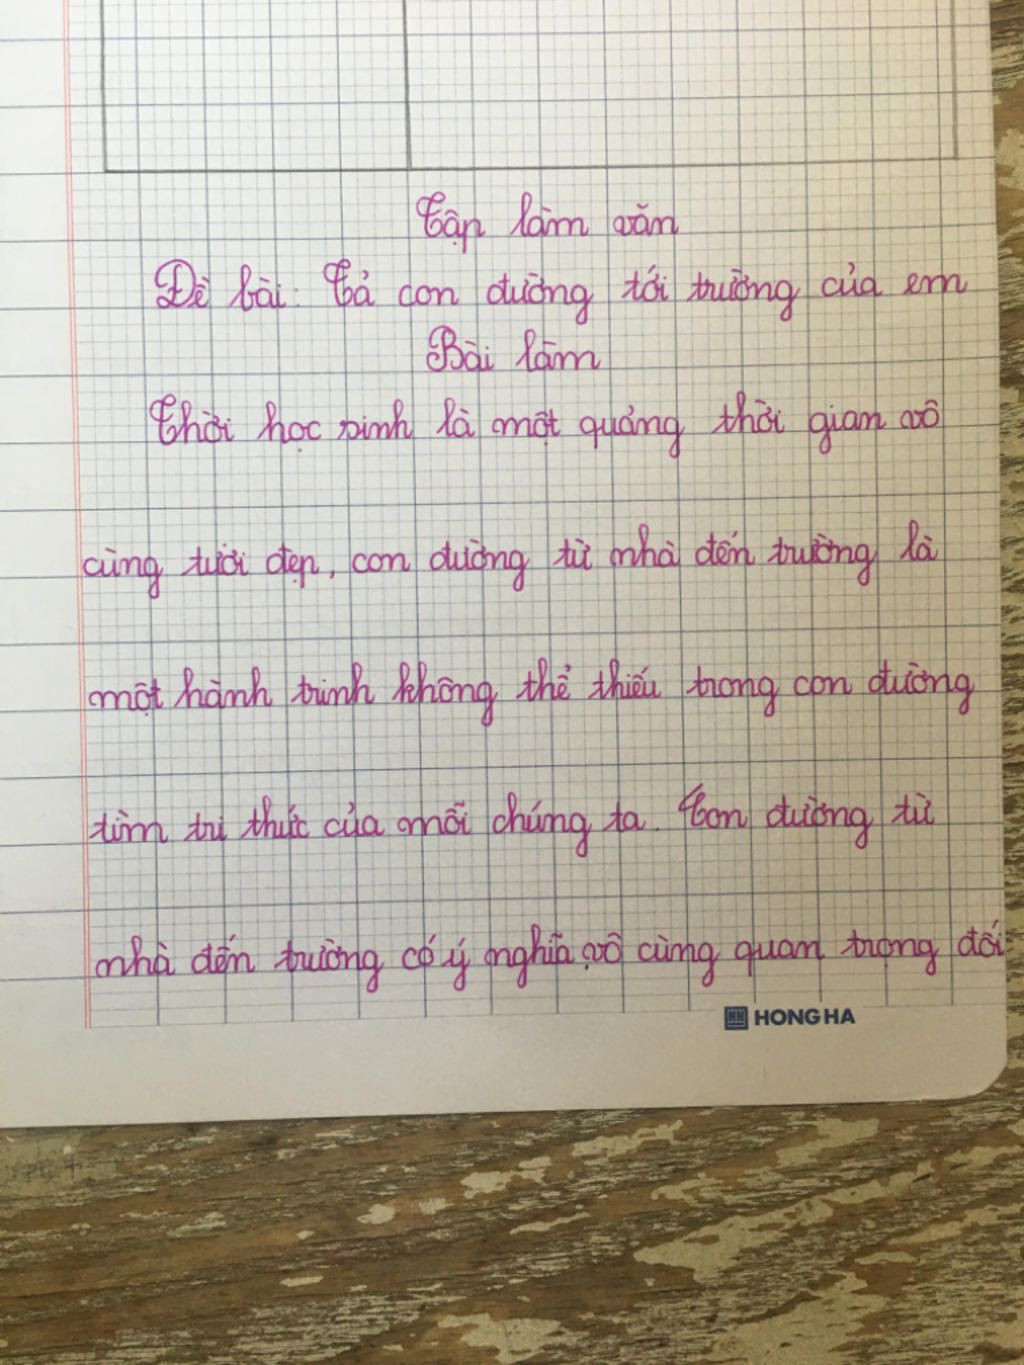 Tập làm văn
Đề bài: Tả con đường tới trường của em
Bài làm
Thời học sinh là một quảng thời gian vô
cùng tươi đẹp, con đường từ nhà đến trường là
một hành trình không thể thiếu trong con đường
tìm tri thức của mỗi chúng ta. Con đường từ
nhà đến trường có ý nghĩa vô cùng quan trọng đối
HH HONG HA